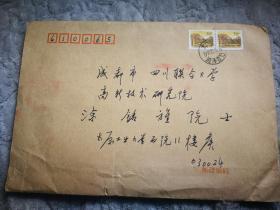 610065
成都市四川联合大学
高新技术研究院
涂铭旌院士
太原工业大学西院11楼庹
030024